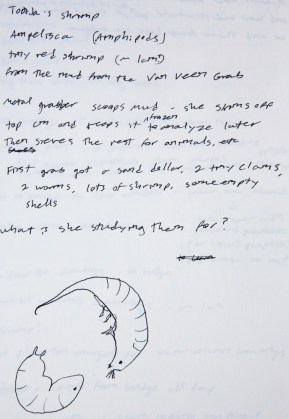 's shrimp
Ampelisca (Amphipods)
tiny red shrimp (~ 1cm)
from the mud from the Van Veen Grab
metal grabber scoops mud - she skims off
top cm and keeps it frozen to analyze later
Then sieves the rest for animals, etc
First grab got a sand dollar, 2 tiny clams,
2 worms, lots of shrimp, some empty
shells
what is she studying them for?